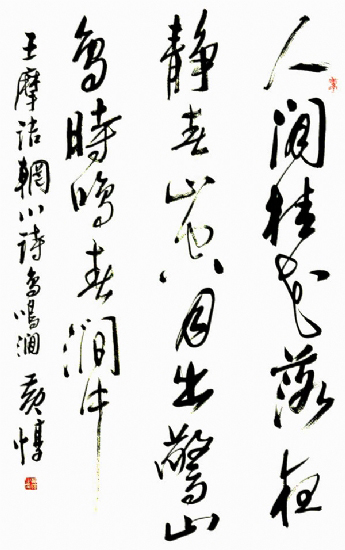 人閒桂花落夜
靜春山空月出驚山
鳥時鳴春澗中
王摩詰輞川詩鳥鳴澗 黄惇